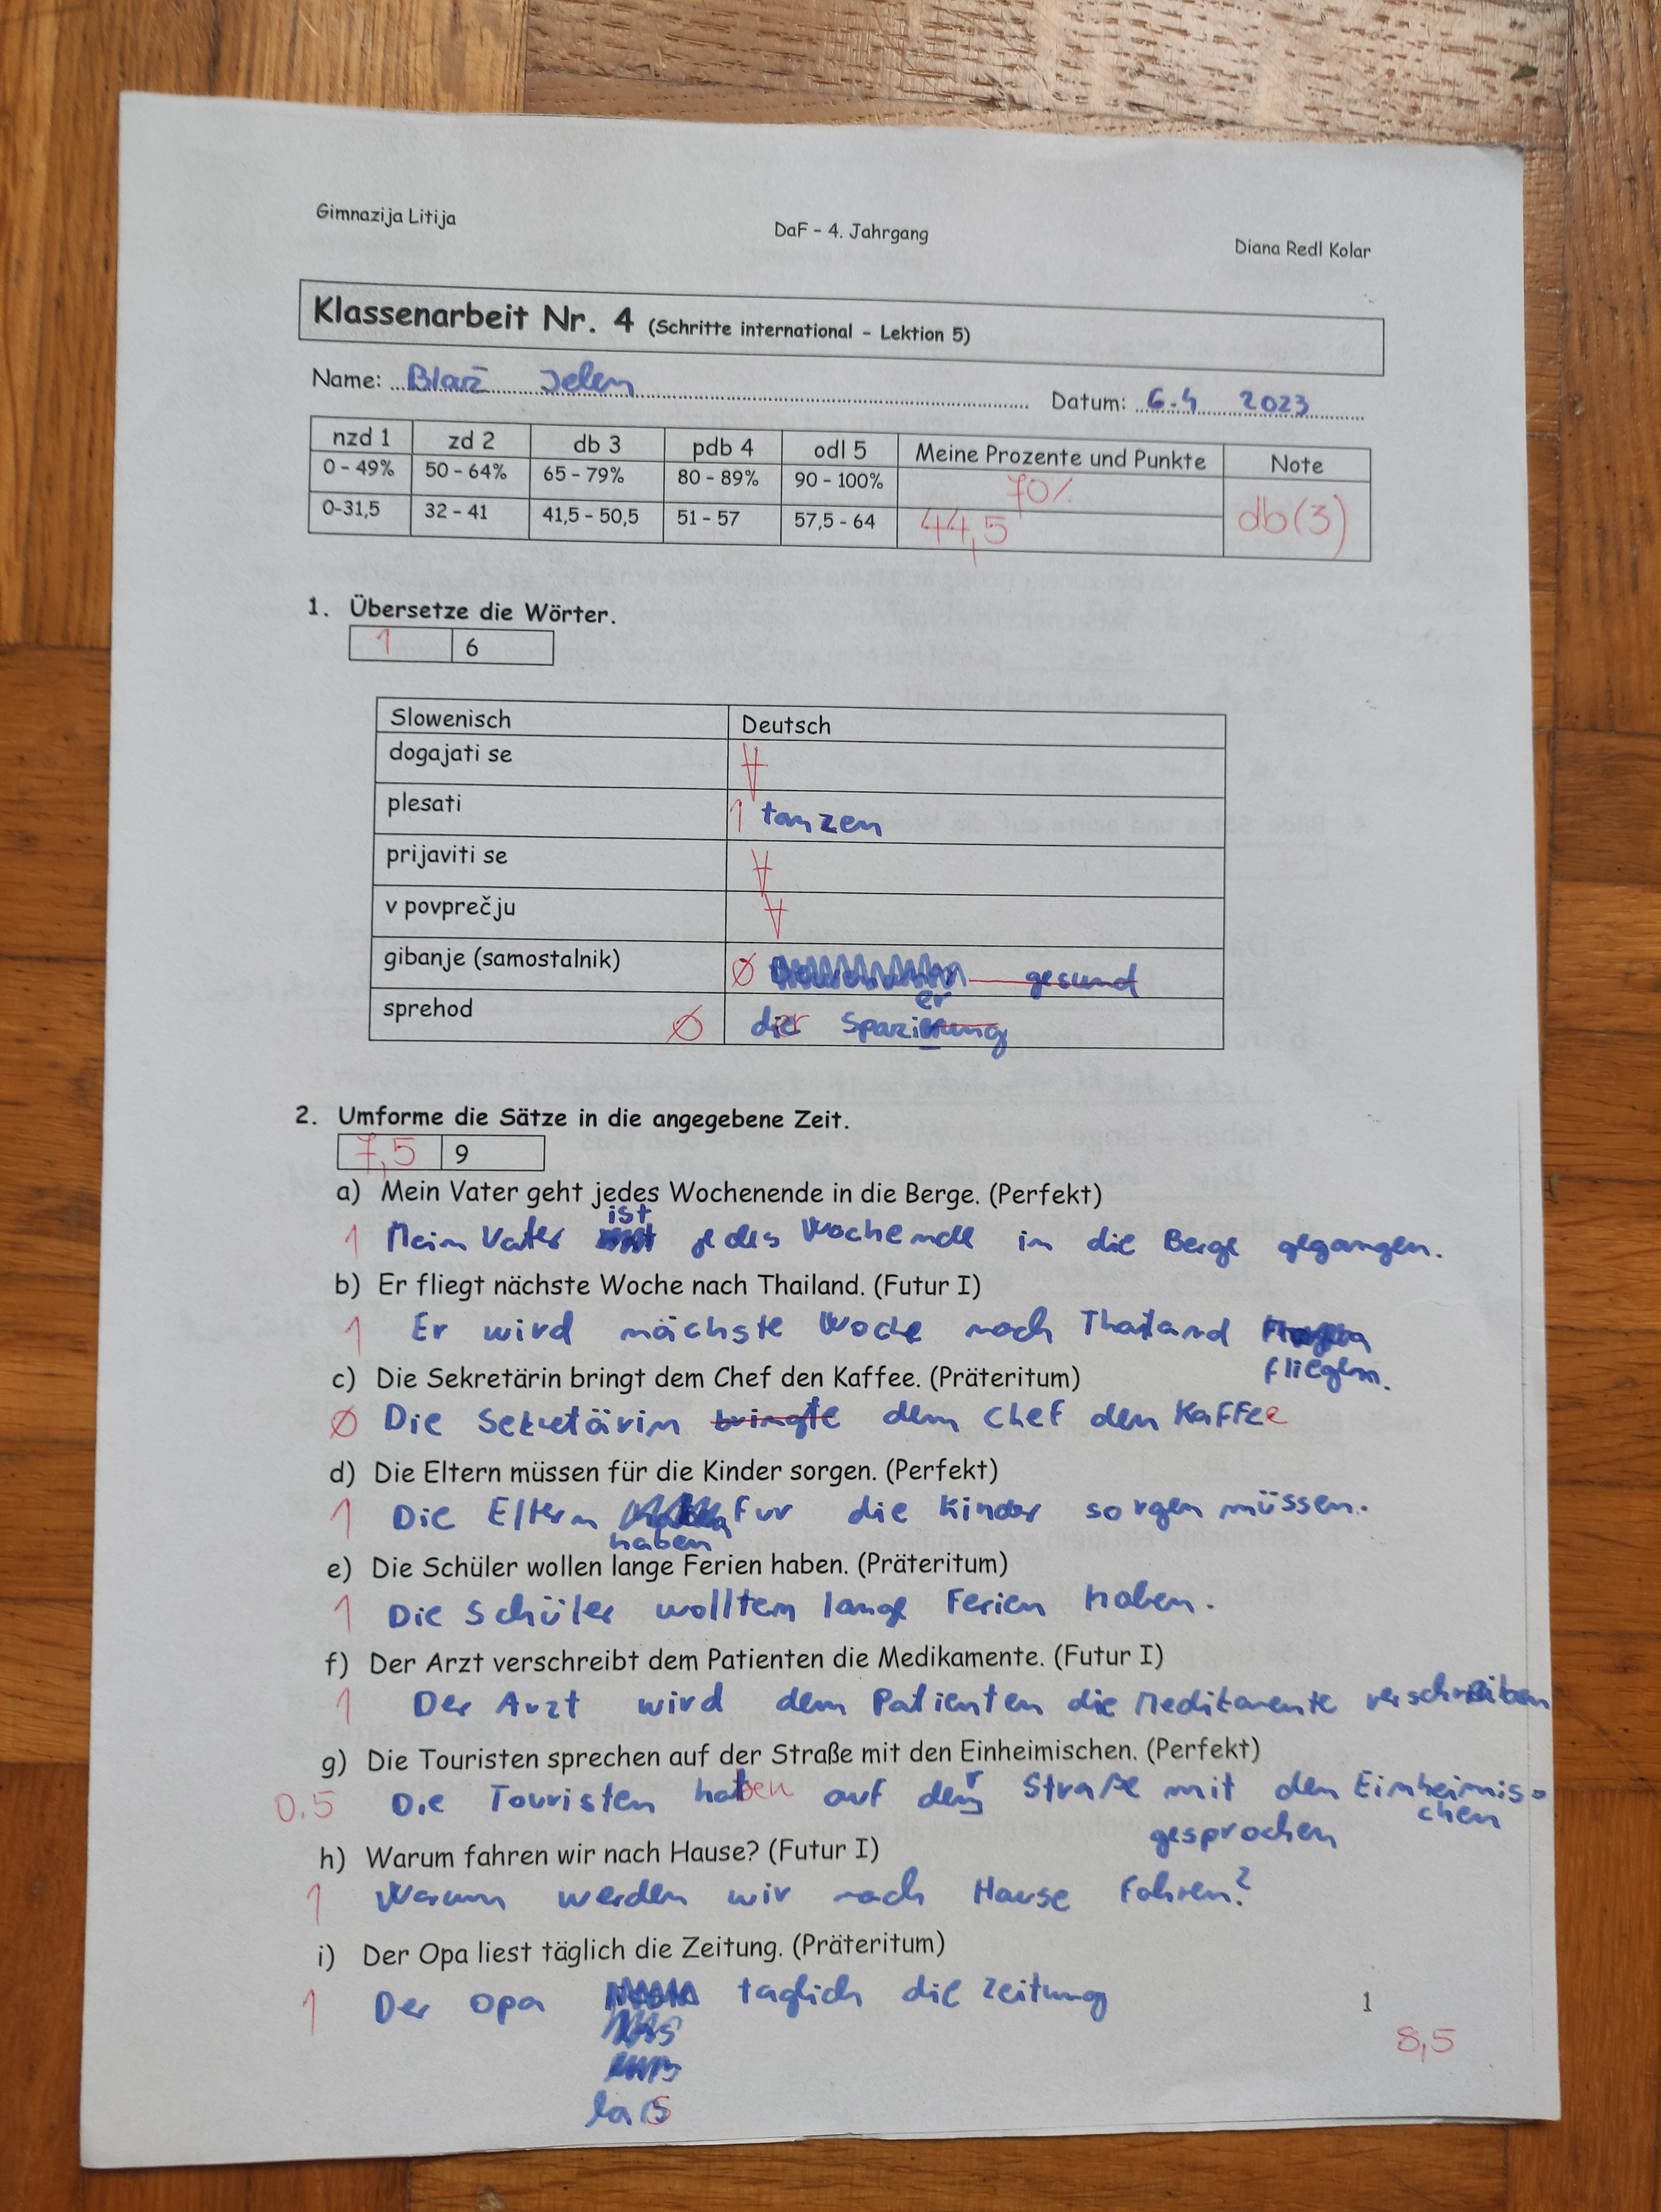 Gimnazija Litija DaF - 4. Jahrgang Diana Redl Kolar
Klassenarbeit Nr. 4 (Schritte international - Lektion 5)
Name: Blaž Jelen Datum: 6.4 2023
nzd 1 zd 2 db 3 pdb 4 odl 5 Meine Prozente und Punkte Note
0 - 49% 50 - 64% 65 - 79% 80 - 89% 90 - 100% 70% db(3)
0-31,5 32 - 41 41,5 - 50,5 51 - 57 57,5 - 64 44,5
1. Übersetze die Wörter.
1 6
Slowenisch Deutsch
dogajati se
plesati 1 tanzen
prijaviti se
v povprečju
gibanje (samostalnik) Ø gesund
sprehod Ø
2. Umforme die Sätze in die angegebene Zeit.
7,5 9
a) Mein Vater geht jedes Wochenende in die Berge. (Perfekt)
1 Mein Vater ist jedes Wochenende in die Berge gegangen.
b) Er fliegt nächste Woche nach Thailand. (Futur I)
1 Er wird nächste Woche nach Thailand
fliegen.
c) Die Sekretärin bringt dem Chef den Kaffee. (Präteritum)
Ø Die Sekretärin bringte dem Chef den Kaffee
d) Die Eltern müssen für die Kinder sorgen. (Perfekt)
1 Die Eltern fur die Kinder sorgen müssen.
haben
e) Die Schüler wollen lange Ferien haben. (Präteritum)
1 Die Schüler wollten lange Ferien haben.
f) Der Arzt verschreibt dem Patienten die Medikamente. (Futur I)
1 Der Arzt wird dem Patienten die Medikamente verschreiben
g) Die Touristen sprechen auf der Straße mit den Einheimischen. (Perfekt)
0.5 Die Touristen haben auf der Straße mit den Einheimis-
chen
gesprochen
h) Warum fahren wir nach Hause? (Futur I)
1 Warum werden wir nach Hause fahren?
i) Der Opa liest täglich die Zeitung. (Präteritum)
1 Der Opa taglich die Zeitung
las
1
8,5